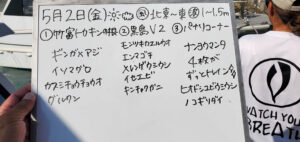 5月2日(金) 北東〜東 1〜1.5m
①竹富トウキンの根 ②黒島V2 ③パナリコーナー
ギンガメアジ
イソマグロ
カスミチョウチョウオ
グルクン
モンツキカエルウオ
エンマゴチ
メレンゲウミウシ
イセエビ
キンチャクガニ
ナンヨウマンタ
ずっとトレイン
ヒオドシユビウミウシ
ノコギリダイ
WATCH YOUR
BREATH